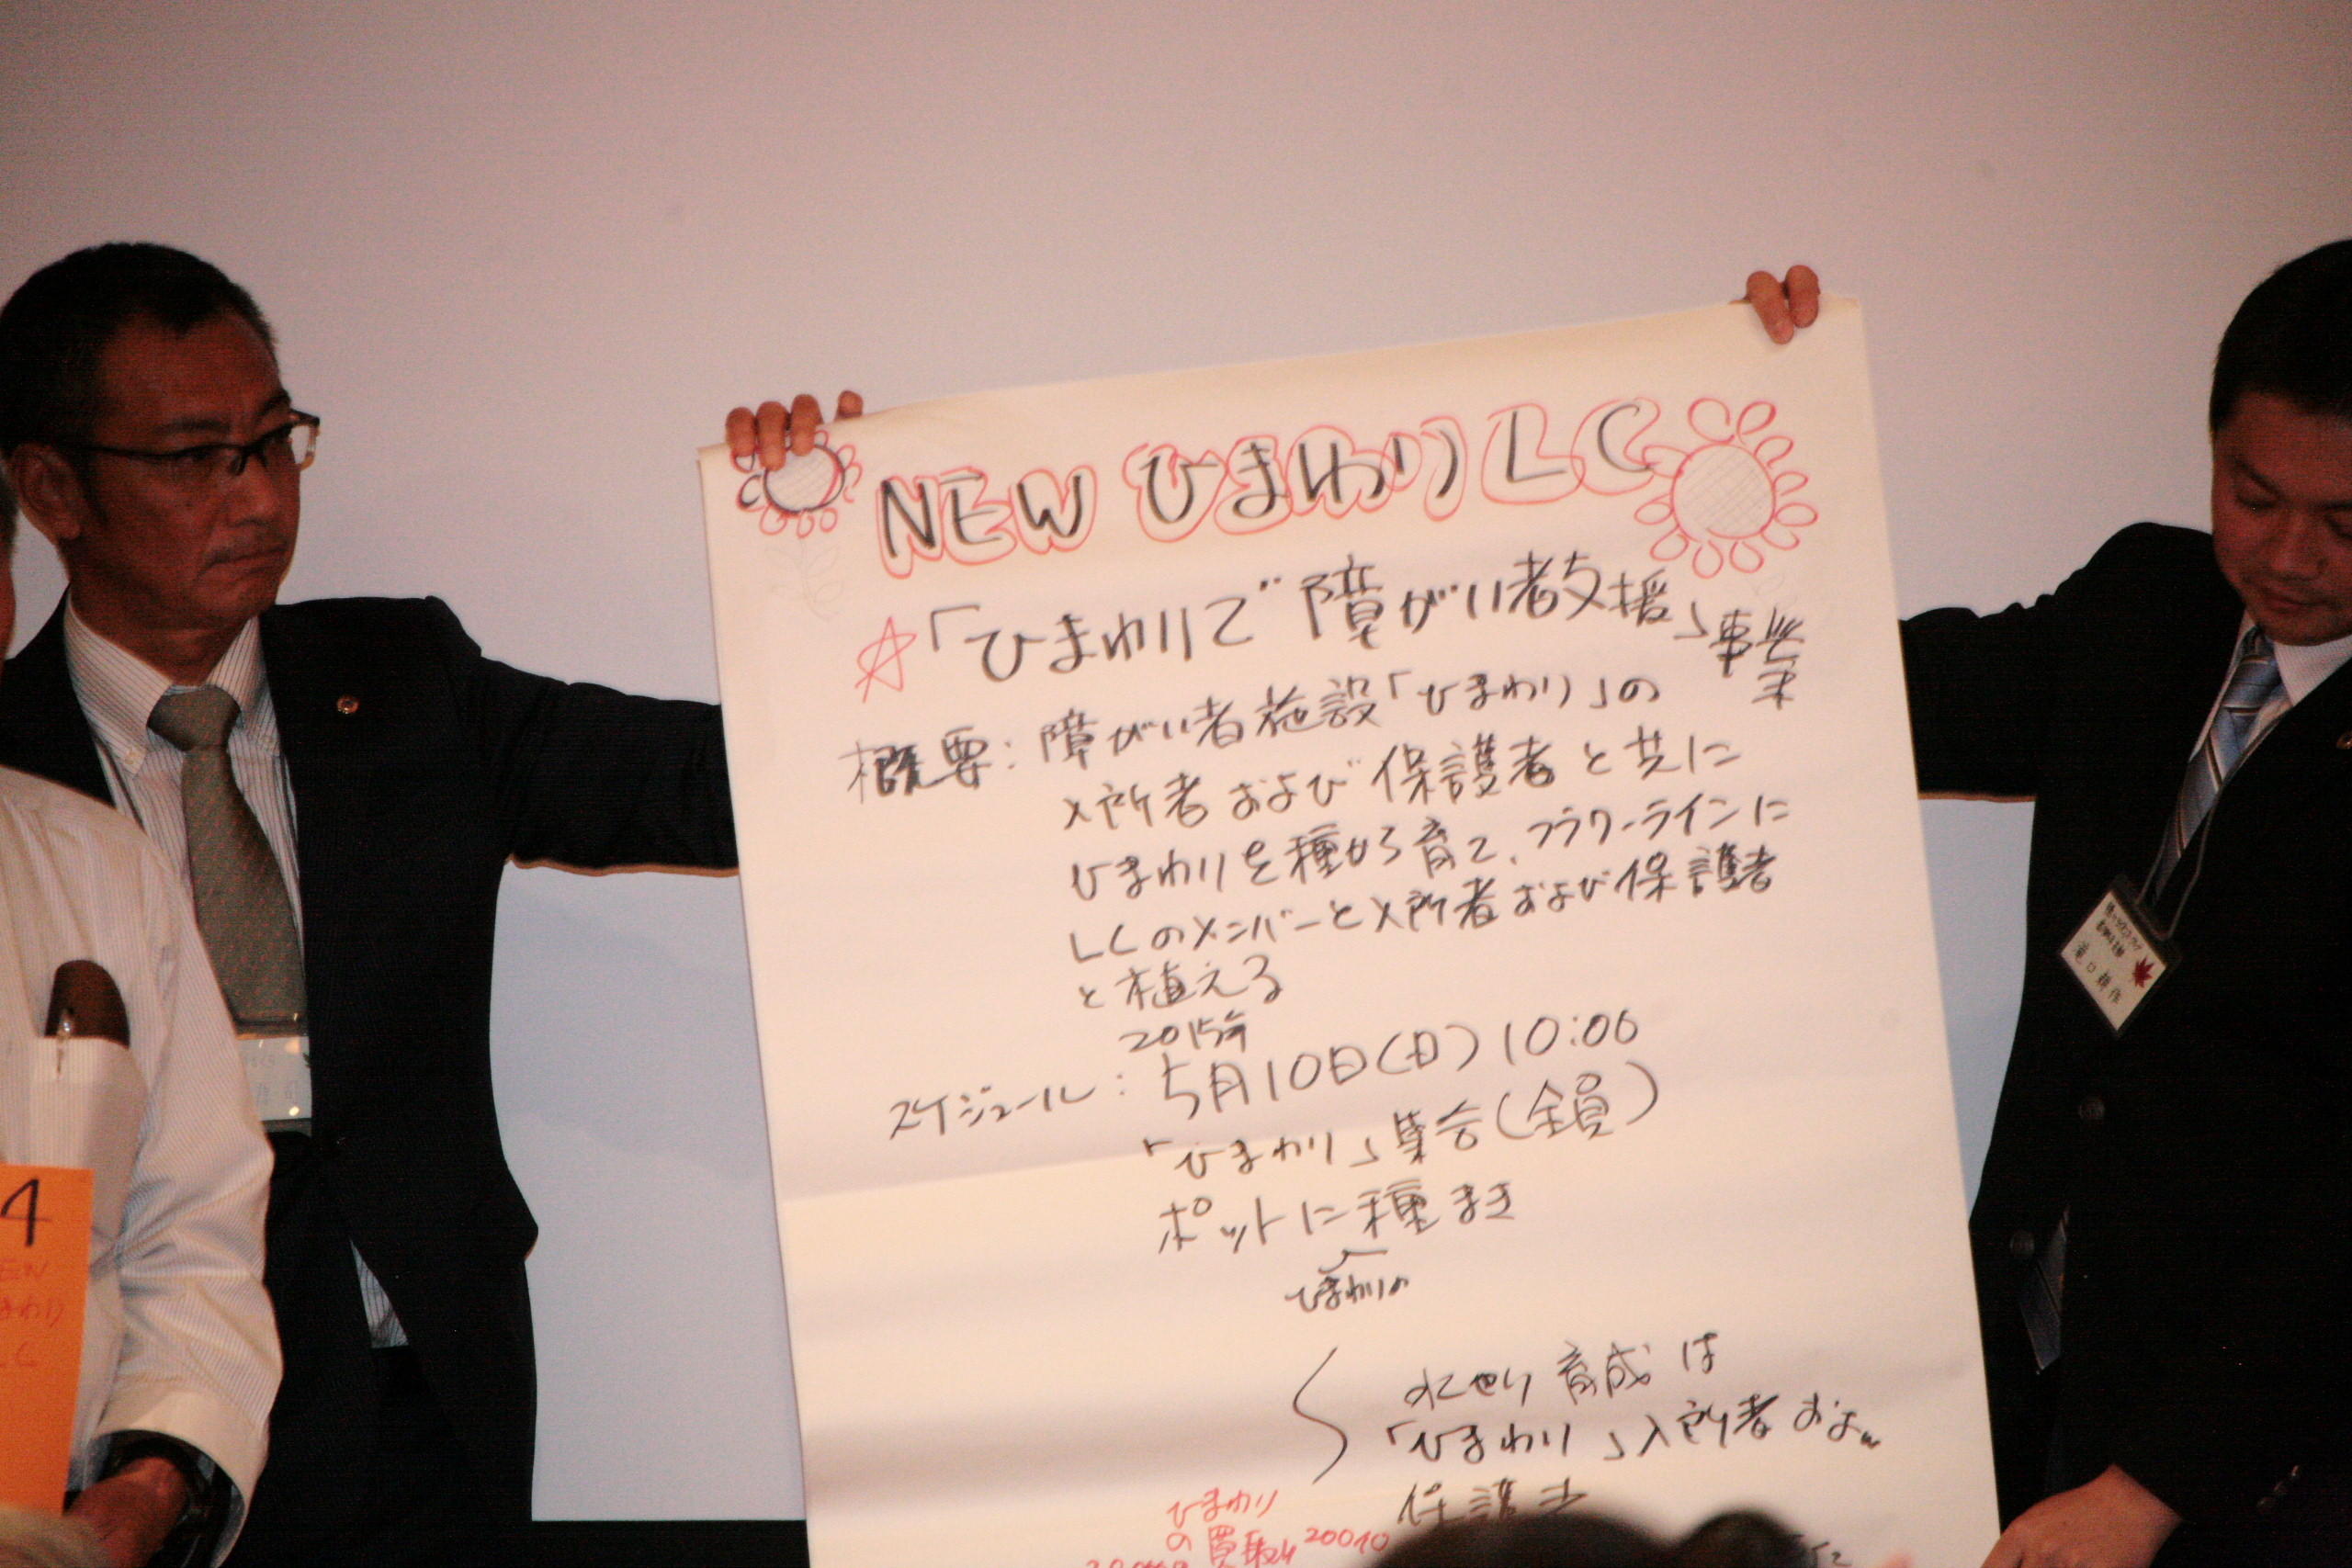 NEW ひまわり LC
☆「ひまわりで障がい者支援」事業
概要：障がい者施設「ひまわり」の
入所者および保護者と共に
ひまわりを種から育て、フラワーラインに
LCのメンバーと入所者および保護者
と植える
2015年
スケジュール：5月10日(日)10:00
「ひまわり」集合(全員)
ポットに種まき
ひまわりの
水やり育成は
「ひまわり」入所者およ
保護
ひまわり
の買取
4
まわり
LC